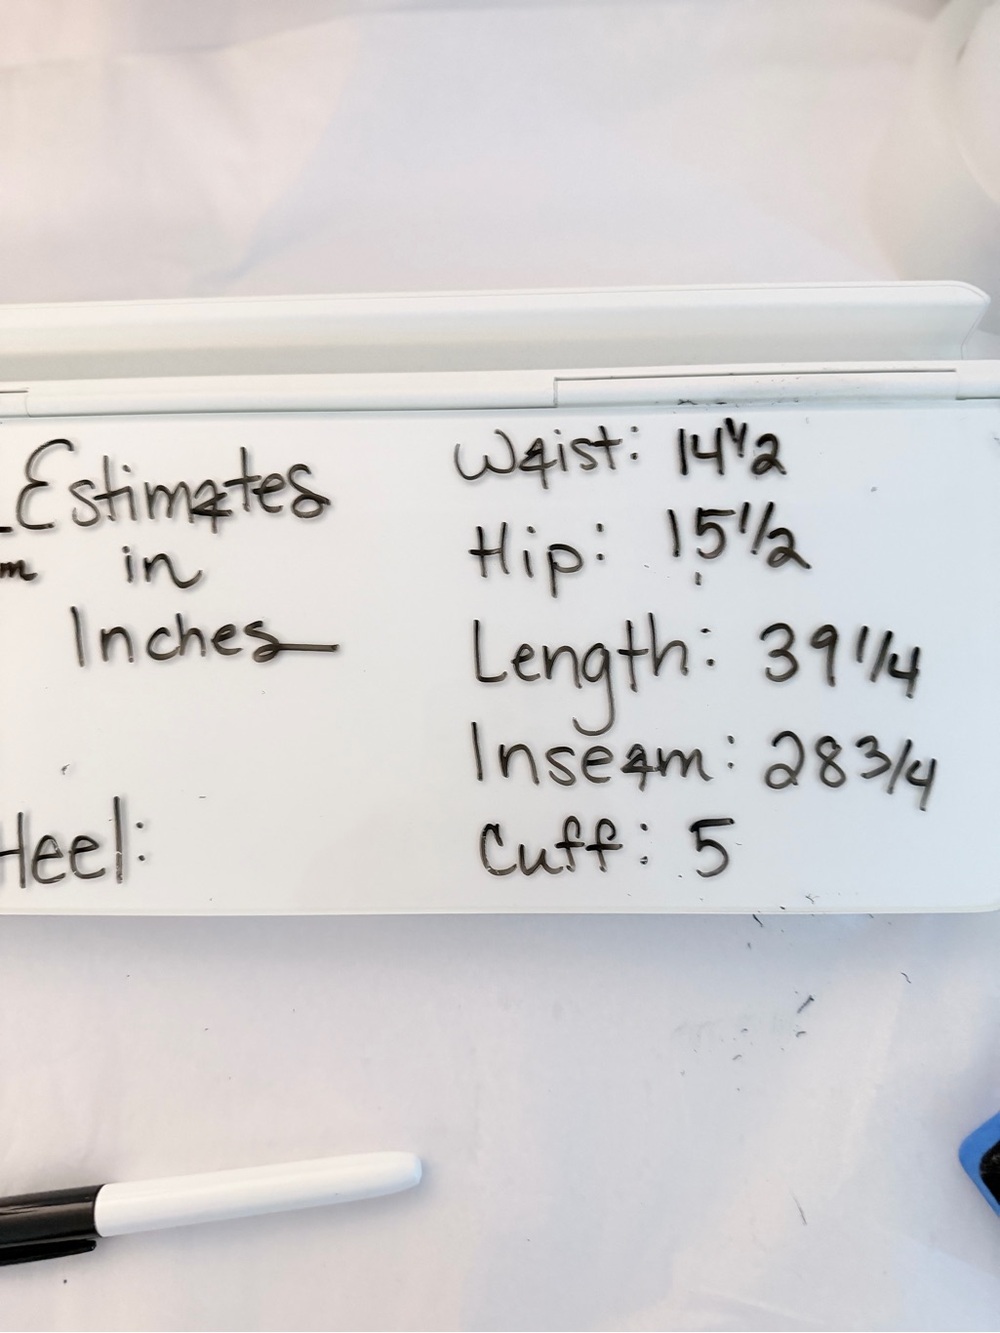 Estimates
in
Inches
Heel:
Waist: 14 1/2
Hip: 15 1/2
Length: 39 1/4
Inseam: 28 3/4
Cuff: 5